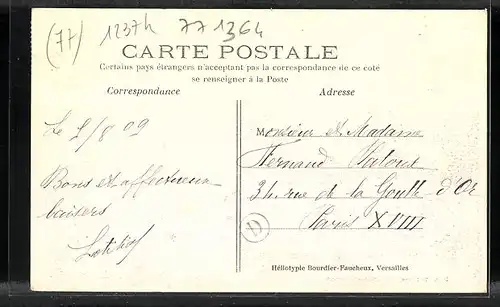 (77) 1237h 771364
CARTE POSTALE
Certains pays étrangers n'acceptant pas la correspondance de ce coté
se renseigner à la Poste
Correspondance
Adresse
Le 5/8 09
Bons et affectueux
baisers
Monsieur et Madame
Fernand
34. rue de la Goutte d'Or
Paris XVIII
D
Héliotypie Bourdier-Faucheux, Versailles